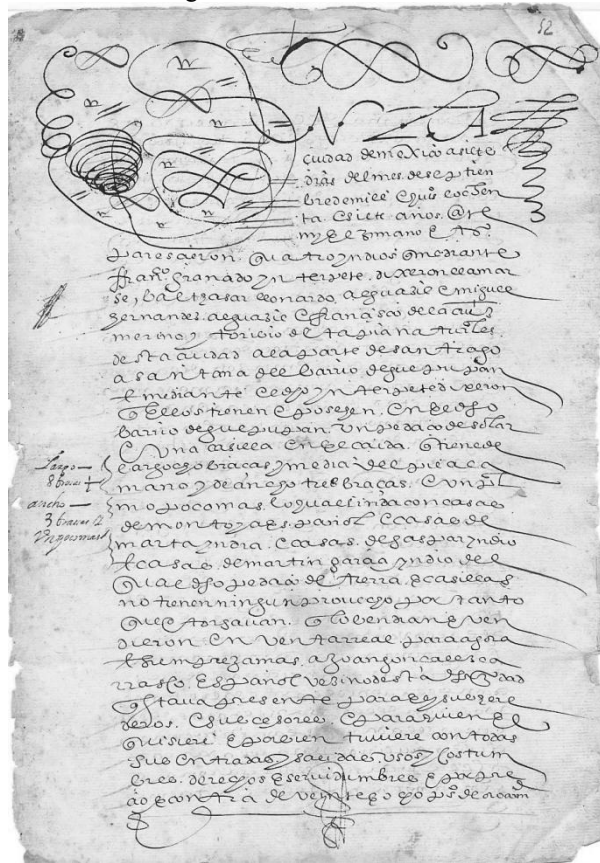 52
En la
ciudad de mexico a siete
dias del mes de septien
bre de mill e quis e ochen
ta e siete años. Ante
my el escriuano e tos.
paresçieron quatro yndios e mediante
franco granado ynterpete. dixeron llamar
se, baltasar leonardo. alguazil e miguel
hernandes. alguazil e francisco de la
merino, y toribio de tapia naturales
desta ciudad a la parte de santiago
a santana del barrio de guepulpan
e mediante el dho ynterpete dixeron
q ellos tienen e poseyen. en el dho
barrio de guepulpan. un pedaço de solar
e una casilla en el caida. q tiene de
largo ocho braças y media del pie a la
mano y de ancho tres braças. e un
mo poco mas. lo qual linda con casas
de montoya español e casas de
marta yndia. e casas. de gaspar yndio
e casas. de martin garcia yndio del
qual dho pedaço de tierra. e casillas
no tienen ningun prouecho por tanto
que otorgauan. q lo bendian e ven
dieron en venta real para agora
e siempre jamas. a joan gonçales ca
rrasco. español vezino desta dha ciudad
questaua presente para el y sus here
deros. e subcesores. e para quien el
quisiere e por bien tuuiere con todas
sus entradas y salidas, usos y costum
bres. derechos e servidumbres e por pre
cio e contia de veinte e ocho ps de oro comun
largo —
8 braças ½
ancho —
3 braças ½
un poco mas